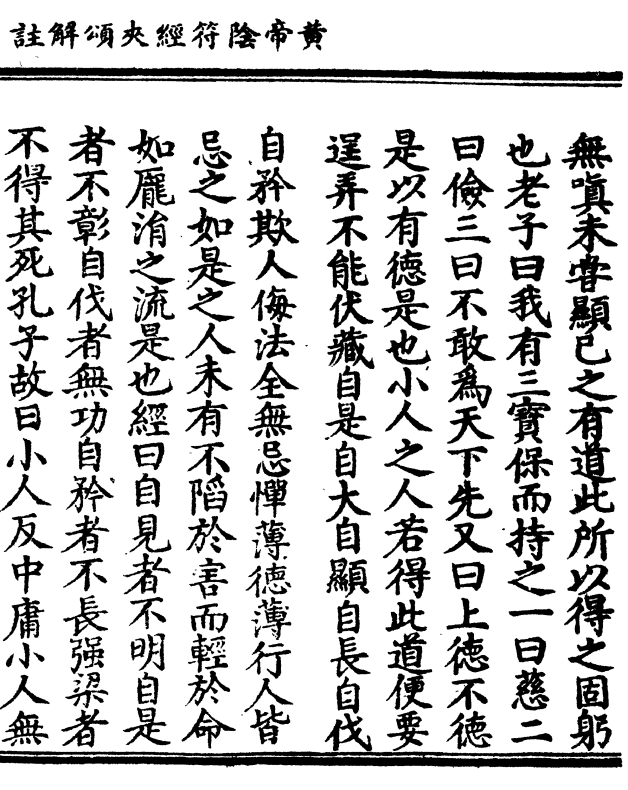 黃帝陰符經夾頌解註
無嗔未嘗顯已之有道此所以得之固躬
也老子曰我有三寶保而持之一曰慈二
曰儉三曰不敢為天下先又曰上德不德
是以有德是也小人之人若得此道便要
逞弄不能伏藏自是自大自顯自長自伐
自矜欺人侮法全無忌憚薄德薄行人皆
忌之如是之人未有不陷於害而輕於命
如龐涓之流是也經曰自見者不明自是
者不彰自伐者無功自矜者不長强梁者
不得其死孔子故曰小人反中庸小人無